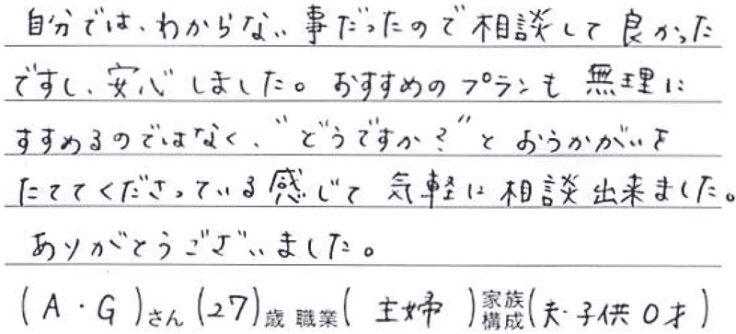 自分では、わからない事だったので相談して良かった
ですし、安心しました。おすすめのプランも無理に
すすめるのではなく、“どうですか？”とおうかがいを
たててくださっている感じで気軽に相談出来ました。
ありがとうございました。
(A・G)さん(27)歳 職業(主婦)家族構成(夫・子供0才)